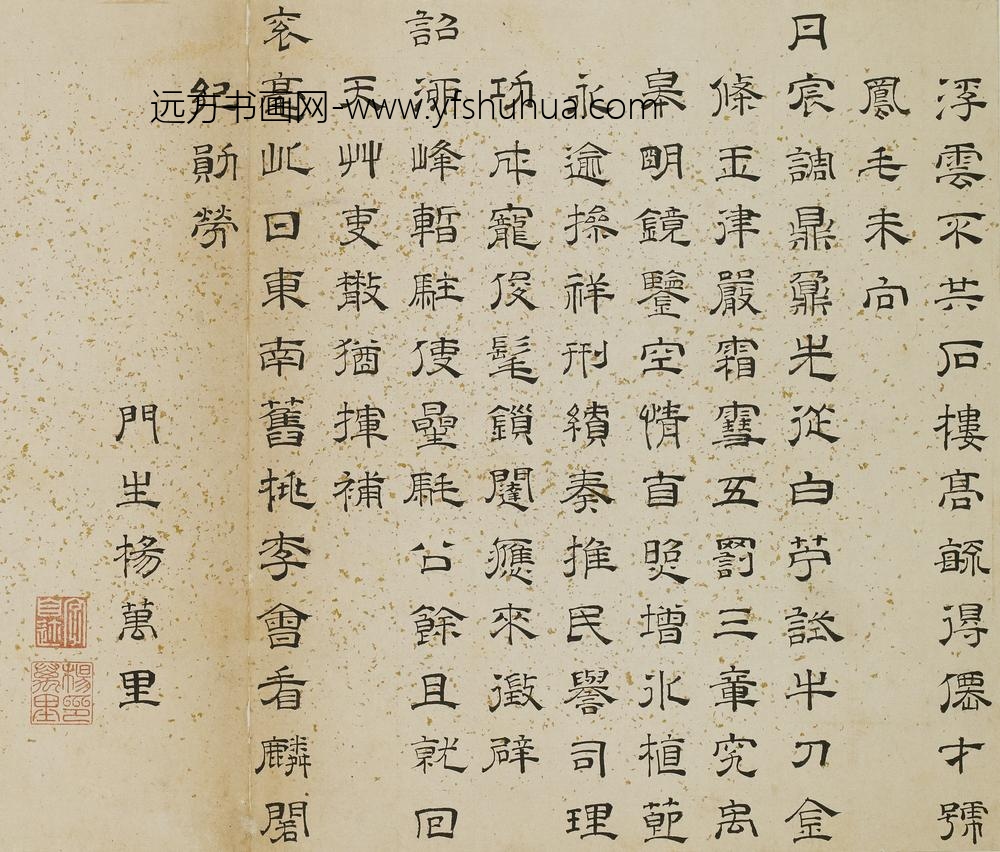 浮雲不共石樓高毓得僊才號
鳳毛未向
日宸調鼎鼐先從白苧試牛刀金
條玉律嚴霜雪五罰三章究禹
皋明鏡鑒空情直照增冰植節
永逾操祥刑績奏推民譽司理
功成寵俊髦鎖闥應來徵辟
詔峰暫駐使星公餘且就回
天艸更散猶揮補
袞毫此日東南舊桃李會看麟閣
紀勛勞
門生楊萬里
远方书画网-www.yfshuhua.com